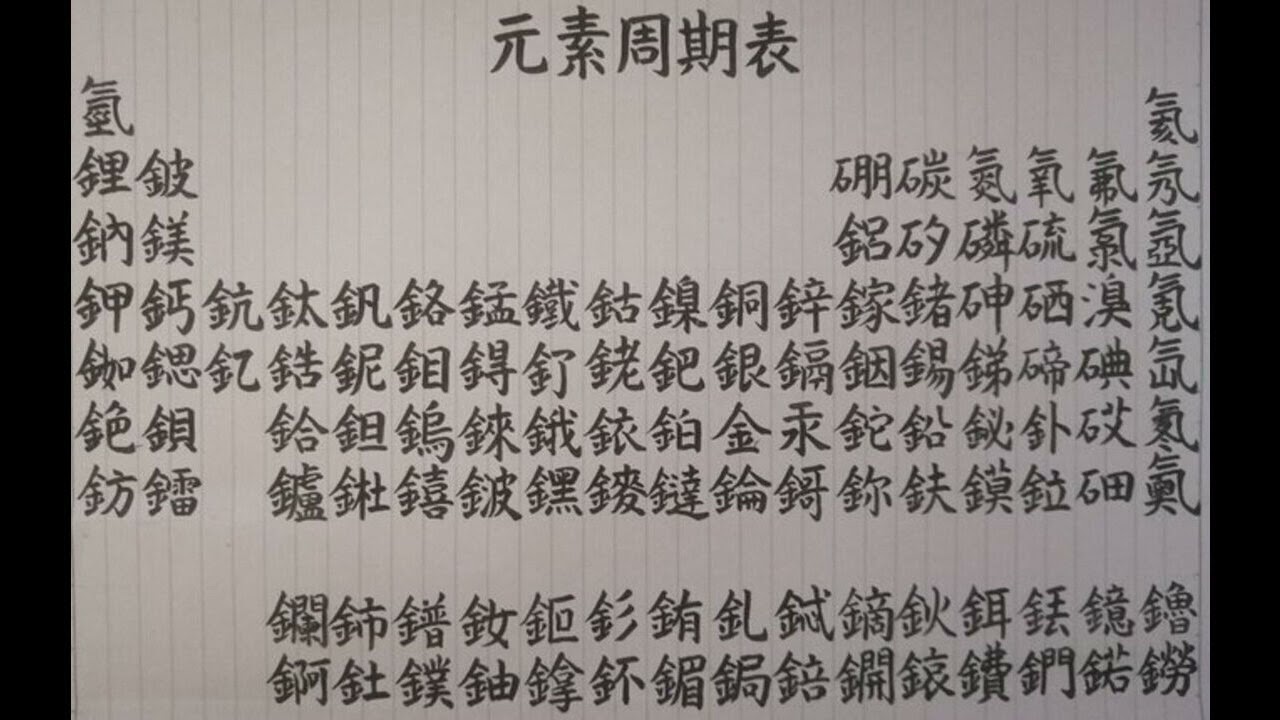 元素周期表
氫 氦
鋰 鈹 硼 碳 氮 氧 氟 氖
鈉 鎂 鋁 矽 磷 硫 氯 氬
鉀 鈣 鈧 鈦 釩 鉻 錳 鐵 鈷 鎳 銅 鋅 鎵 鍺 砷 硒 溴 氪
銣 鍶 釔 鋯 鈮 鉬 鍀 釕 銠 鈀 銀 鎘 銦 錫 銻 碲 碘 氙
銫 鋇 鉿 鉭 鎢 錸 鋨 銥 鉑 金 汞 鉈 鉛 鉍 釙 砹 氡
鈁 鐳 鑪 𨧀 𨭎 𨨏 𨭆 䥑 鐽 錀 鎶 鉨 鈇 鏌 鉝 鿬 鿫
鑭 鈰 鐠 釹 鉕 釤 銪 釓 鋱 鏑 鈥 鉺 銩 鐿 鑥
錒 釷 鏷 鈾 鎿 鈈 鎇 鋦 錇 鐦 鎄 鐨 鍆 鍩 鐒